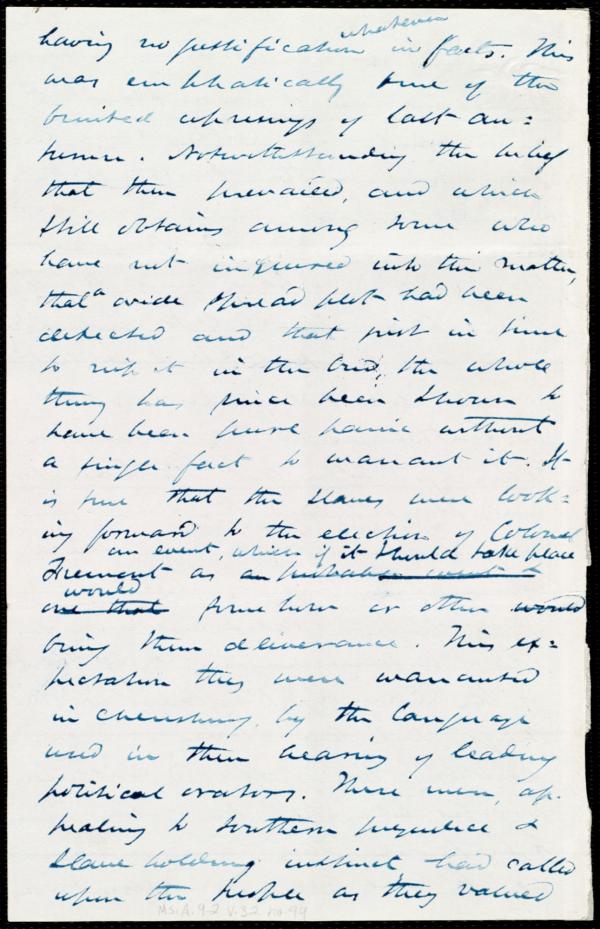 whatever
having no justification in facts. This
was emphatically true of the
bruited uprisings of last au=
tumn. Notwithstanding the belief
that then prevailed, and which
still obtains among some who
have not inquired into the matter,
that a wide spread plot had been
detected and that just in time
to nip it in the bud, the whole
thing has since been shown to
have been pure panic without
a single fact to warrant it. It
is true that the slaves were look=
ing forward to the election of Colonel
an event, which if it should take place
Fremont as an probable event &
would
one that some how or other would
bring them deliverance. This ex=
pectation they were warranted
in cherishing by the language
used in their hearing of leading
political orators. These men, ap-
pealing to southern prejudice &
slave holding instinct had called
upon the people as they valued
MS.A.9.2 v.32 no.99